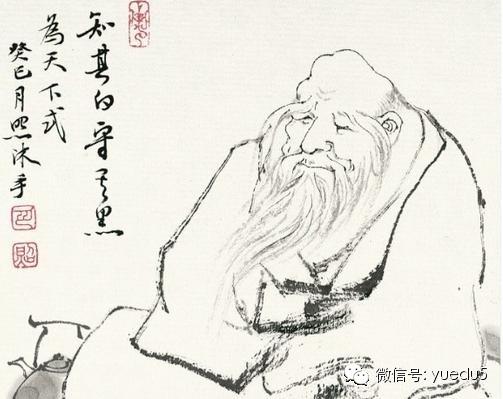 知其白守其黑
為天下式
癸巳月照沐手
微信号: yuedu5